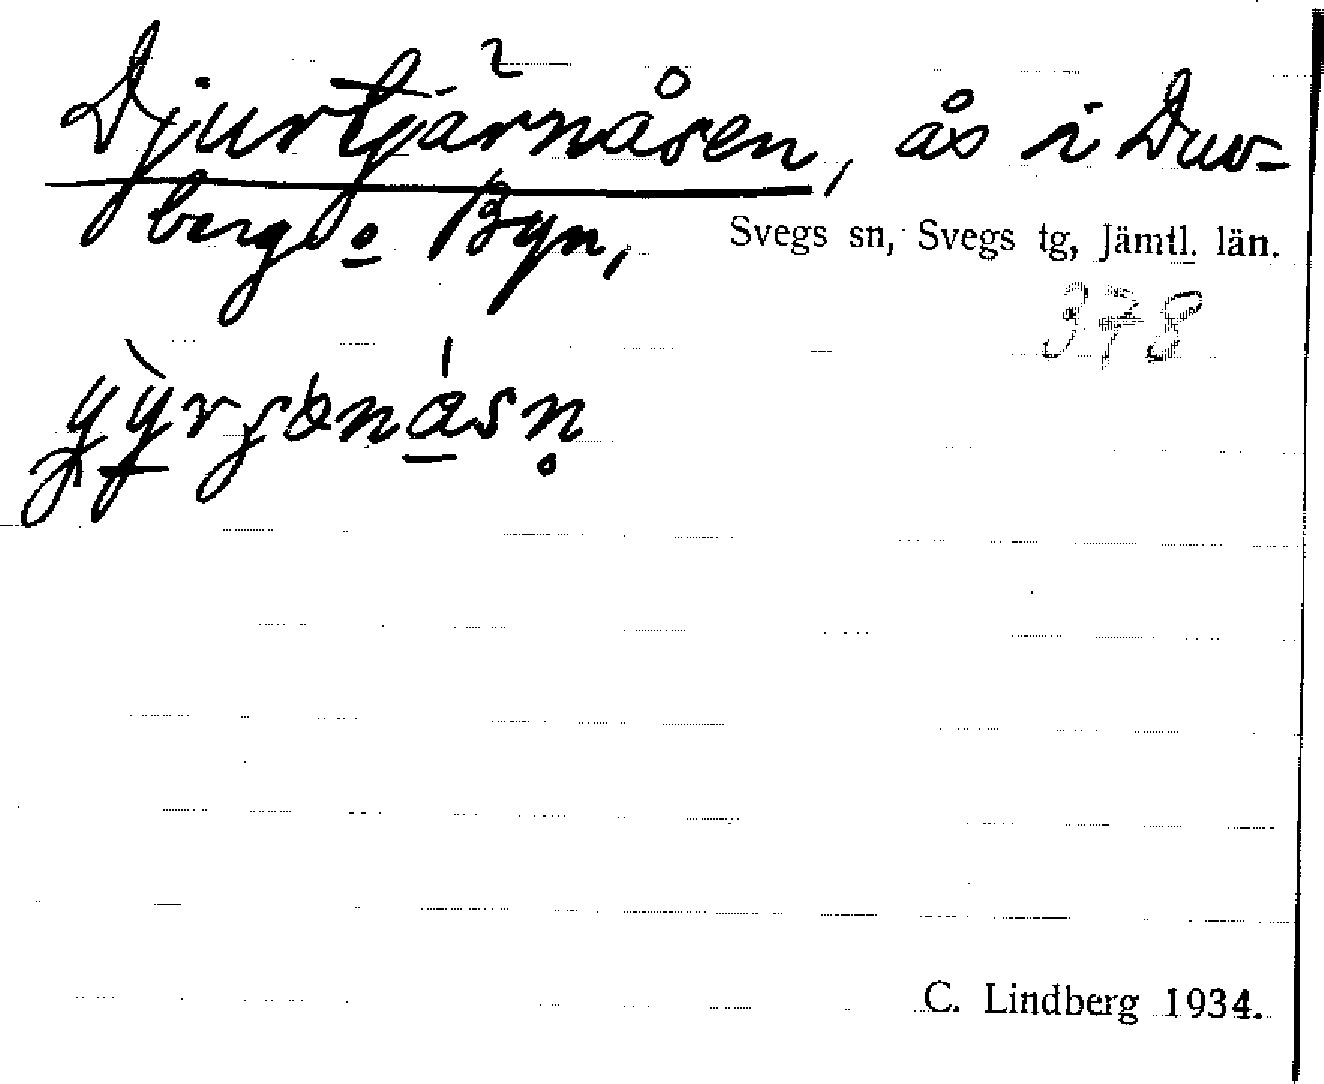 Djurtjärnåsen, ås i Duv-
bergs o Byn, Svegs sn, Svegs tg, Jämtl. län.
378
C. Lindberg 1934.